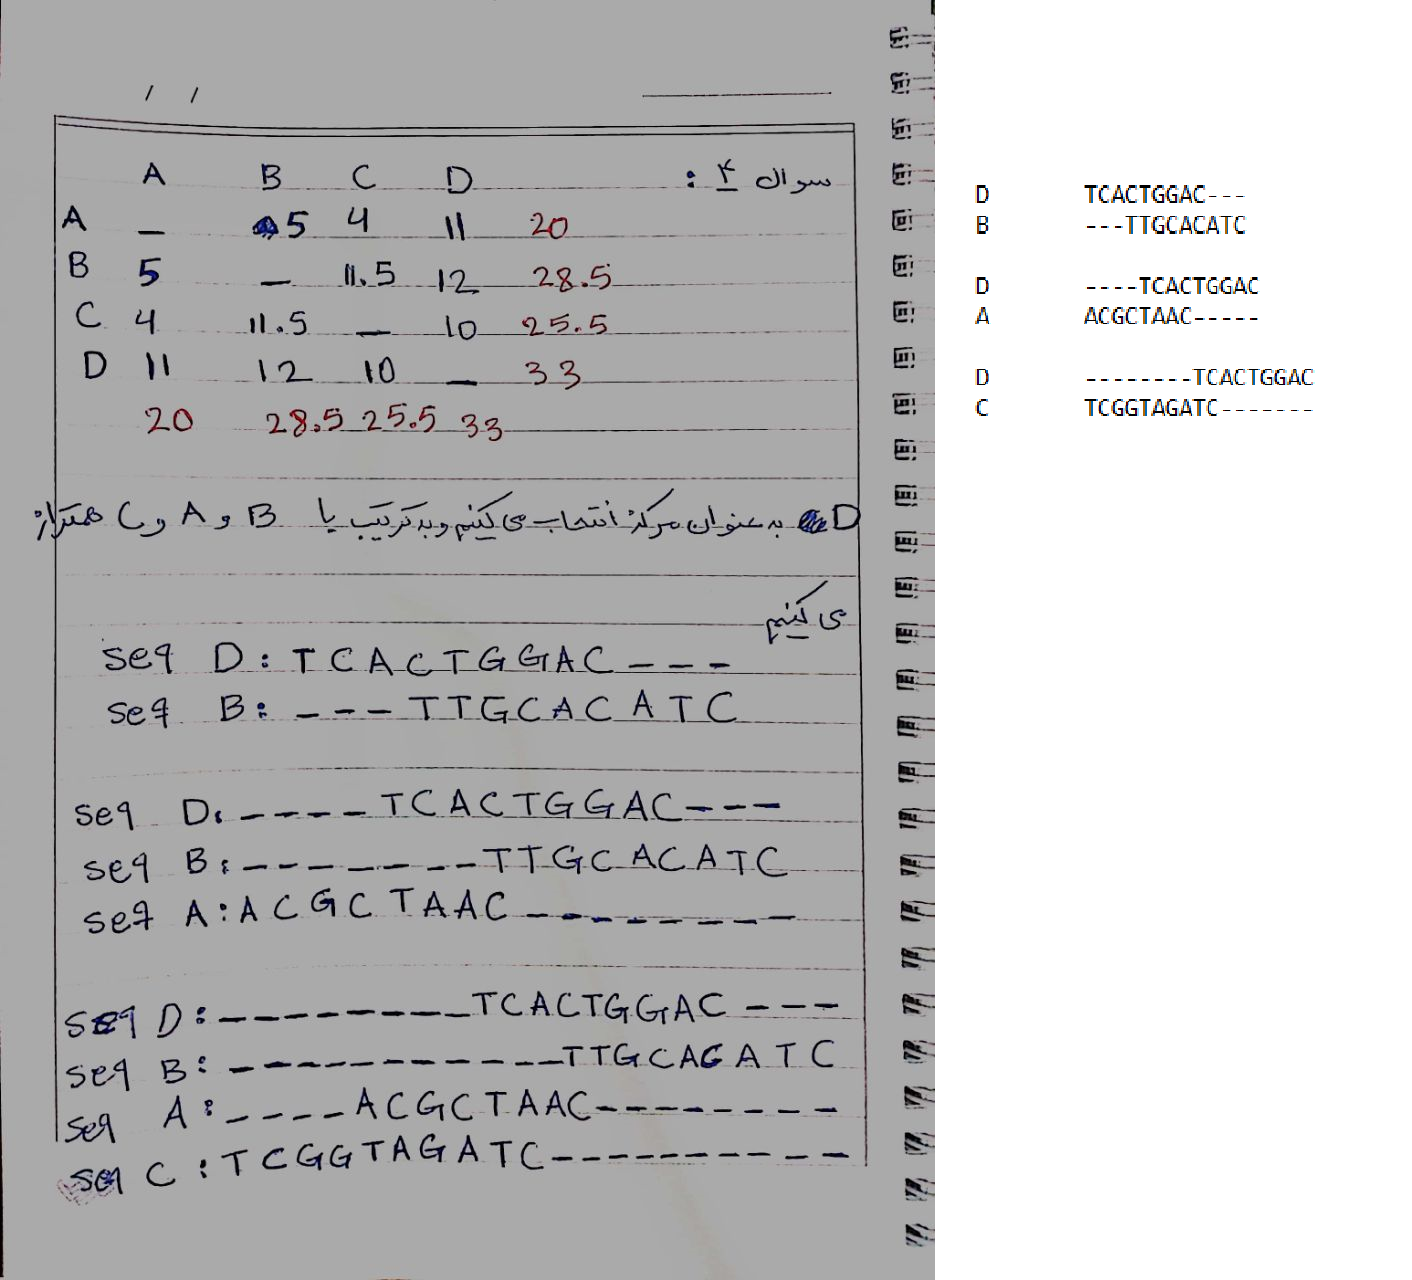 / /
سوال ۴ :
A B C D
A – 5 4 11 20
B 5 – 11.5 12 28.5
C 4 11.5 – 10 25.5
D 11 12 10 – 33
20 28.5 25.5 33
D به عنوان مرکز انتخاب می کنیم و به ترتیب با B و A و C همتراز
می کنیم
seq D: TCACTGGAC---
seq B: ---TTGCACATC
seq D: ----TCACTGGAC---
seq B: -------TTGCACATC
seq A: ACGCTAAC--------
seq D: --------TCACTGGAC---
seq B: -----------TTGCACATC
seq A: ----ACGCTAAC--------
seq C: TCGGTAGATC----------
D TCACTGGAC---
B ---TTGCACATC
D ----TCACTGGAC
A ACGCTAAC-----
D --------TCACTGGAC
C TCGGTAGATC-------